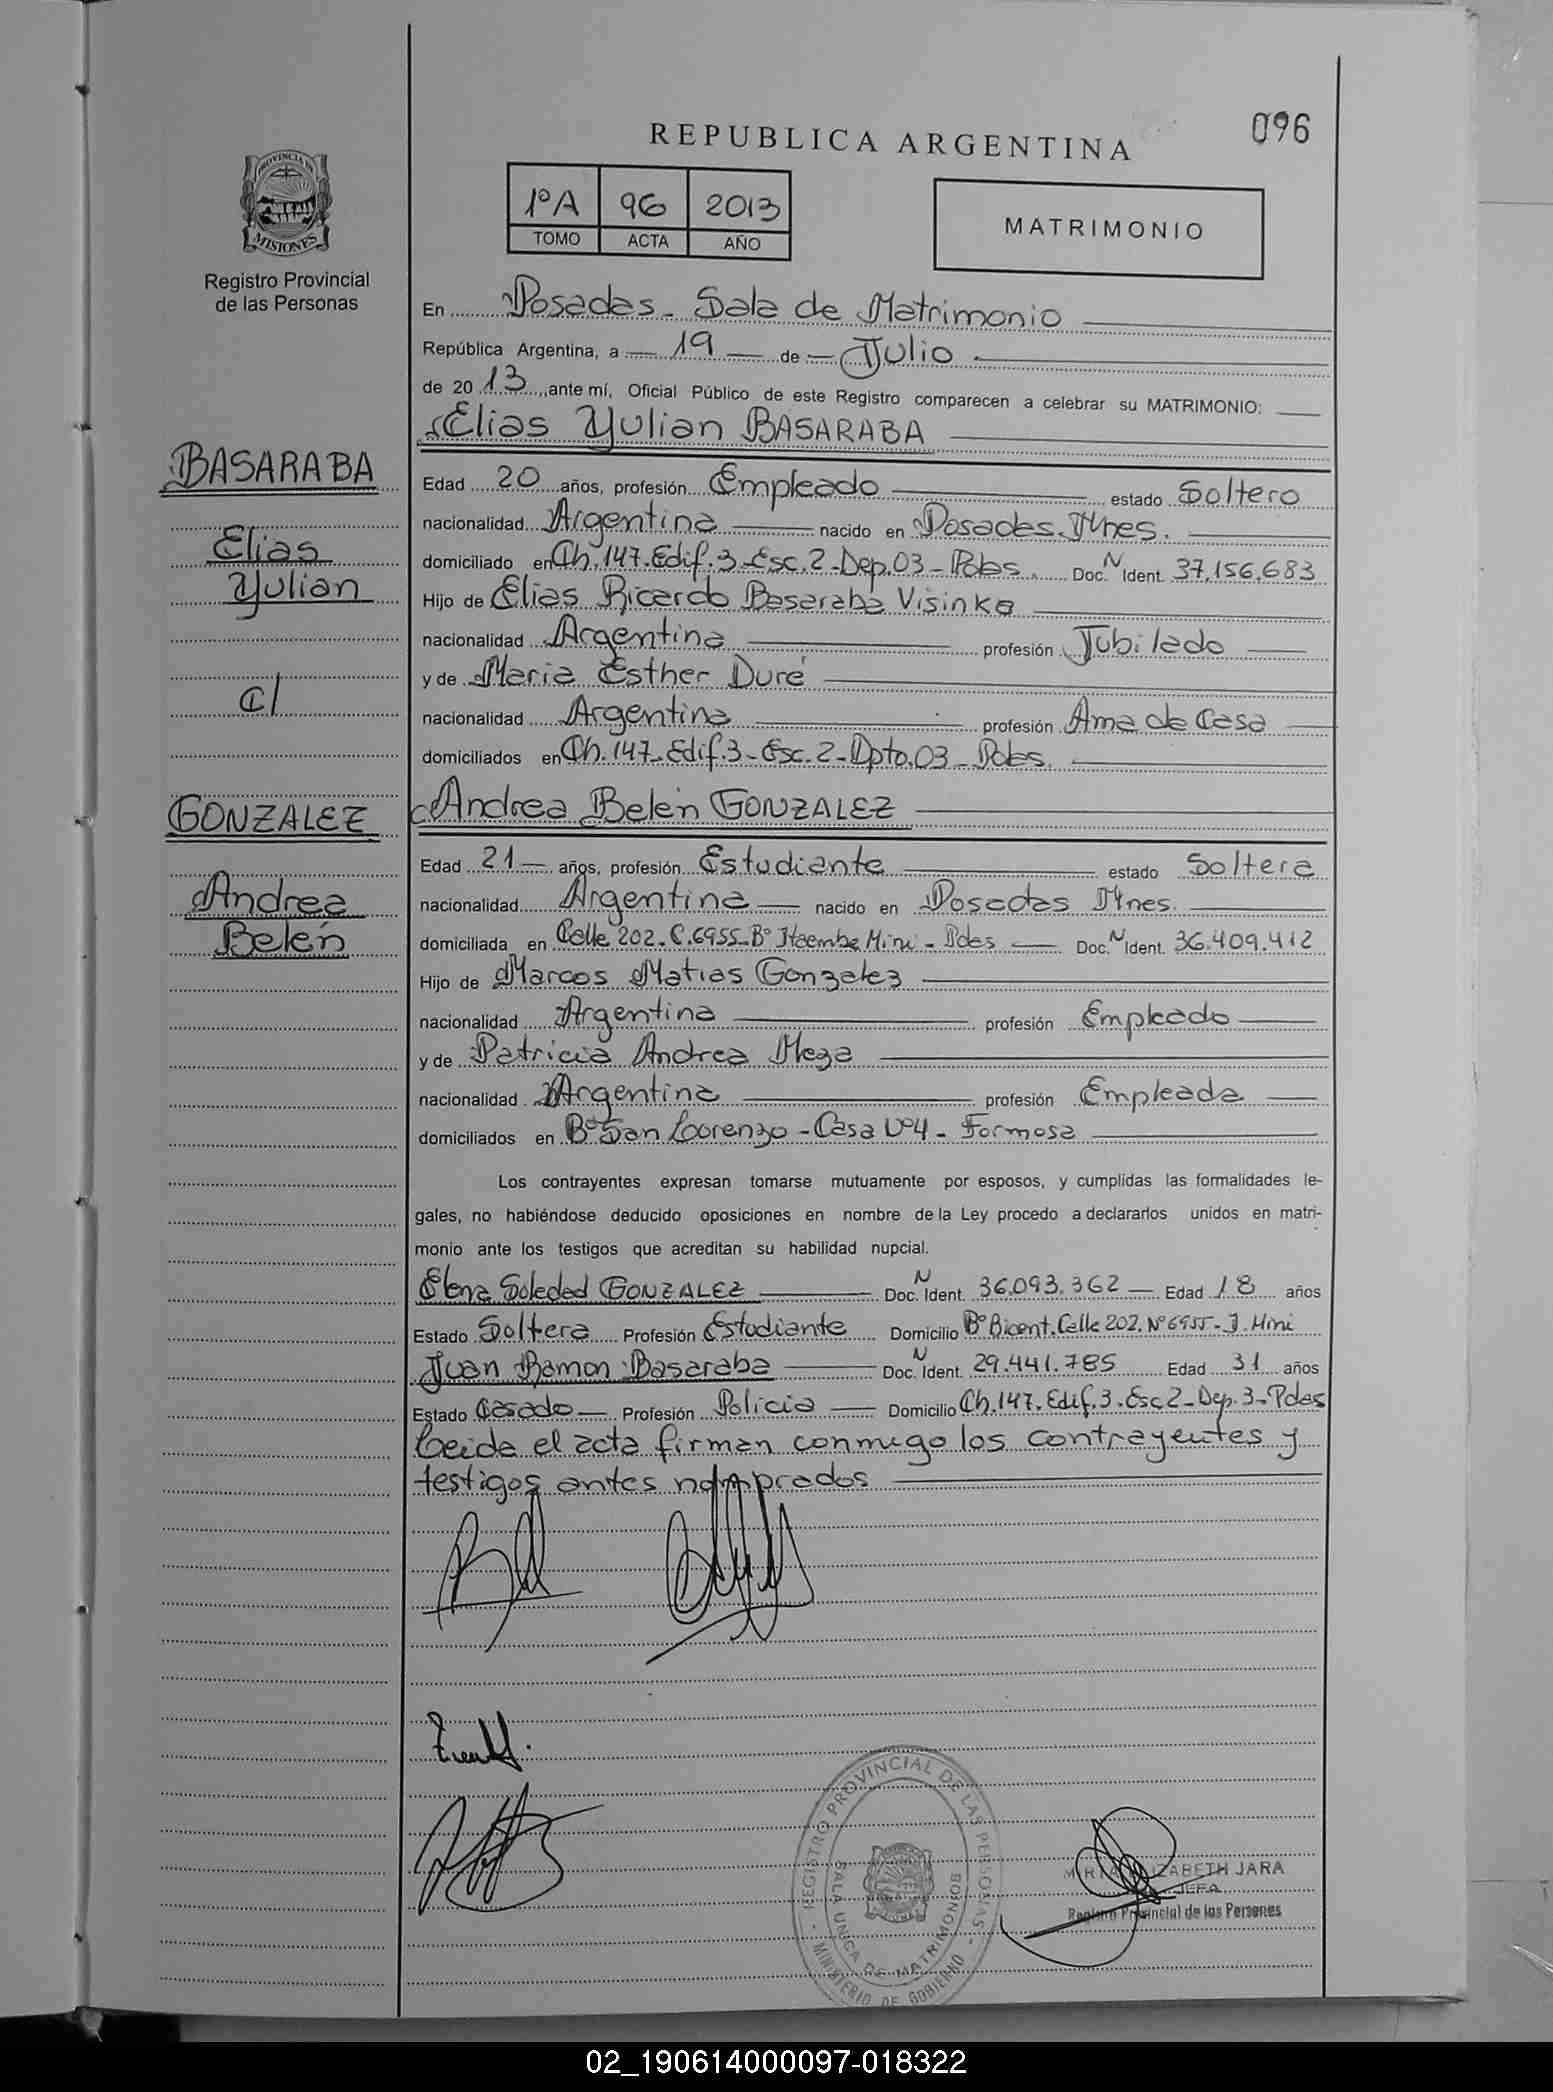 096
REPUBLICA ARGENTINA
PROVINCIA DE
MISIONES
Registro Provincial
de las Personas
1ºA 96 2013
TOMO ACTA AÑO
MATRIMONIO
En Posadas - Sala de Matrimonio
República Argentina, a 19 de Julio
de 20 13, ante mí, Oficial Público de este Registro comparecen a celebrar su MATRIMONIO:
Elias Yulian BASARABA
BASARABA
Elias
Yulian
c/
GONZALEZ
Andrea
Belén
Edad 20 años, profesión Empleado estado Soltero
nacionalidad Argentina nacido en Posadas, Mnes.
domiciliado en Ch. 147. Edif. 3 - Esc. 2 - Dep. 03 - Pdas. Doc. N Ident. 37.156.683
Hijo de Elias Ricardo Basaraba Visinka
nacionalidad Argentina profesión Jubilado
y de Maria Esther Duré
nacionalidad Argentina profesión Ama de Casa
domiciliados en Ch. 147. Edif. 3 - Esc. 2 - Dpto. 03 - Pdas.
Andrea Belén GONZALEZ
Edad 21 años, profesión Estudiante estado Soltera
nacionalidad Argentina nacido en Posadas Mnes.
domiciliada en Calle 202. C. 6955 - Bº Itaembe Mini - Pdas Doc. N Ident. 36.409.412
Hijo de Marcos Matias Gonzalez
nacionalidad Argentina profesión Empleado
y de Patricia Andrea Meza
nacionalidad Argentina profesión Empleada
domiciliados en Bº San Lorenzo - Casa Nº4 - Formosa
Los contrayentes expresan tomarse mutuamente por esposos, y cumplidas las formalidades le-
gales, no habiéndose deducido oposiciones en nombre de la Ley procedo a declararlos unidos en matri-
monio ante los testigos que acreditan su habilidad nupcial.
Elena Soledad GONZALEZ Doc. N Ident. 36.093.362 Edad 18 años
Estado Soltera Profesión Estudiante Domicilio Bº Bicent. Calle 202. Nº 6955 - I. Mini
Juan Ramon Basaraba Doc. N Ident. 29.441.785 Edad 31 años
Estado Casado Profesión Policia Domicilio Ch. 147. Edif. 3. Esc 2 - Dep. 3 - Pdas
Leida el acta firman conmigo los contrayentes y
testigos antes nombrados
REGISTRO PROVINCIAL DE LAS PERSONAS
SALA UNICA DE MATRIMONIOS
MINISTERIO DE GOBIERNO
ELIZABETH JARA
JEFA
Registro Provincial de las Personas
02_190614000097-018322